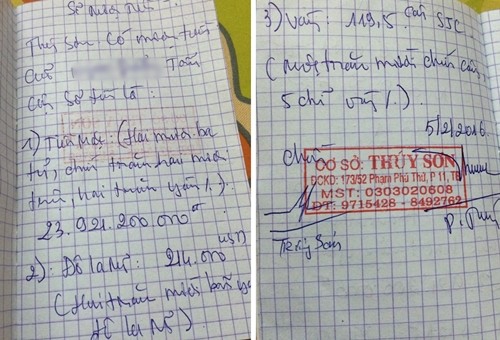 Sổ mượn tiền
Thúy Sơn có mượn tiền
của Tâm
Các số tiền là :
1) Tiền Mặt : (Hai mươi ba
tỷ, chín trăm hai mươi
triệu, hai trăm ngàn /.)
23.921.200.000đ
2) : Đô la Mỹ : 214.000 USD
(Hai trăm mười bốn ngàn
đô la Mỹ).
3) Vàng : 119,5 cây SJC
(Một trăm mười chín cây
5 chỉ vàng /.)
5/2/2016
CƠ SỞ: THÚY SƠN
ĐCKD: 173/52 Phạm Phú Thứ, P 11, TB
MST: 0303020608
ĐT: 9715428 - 8492762